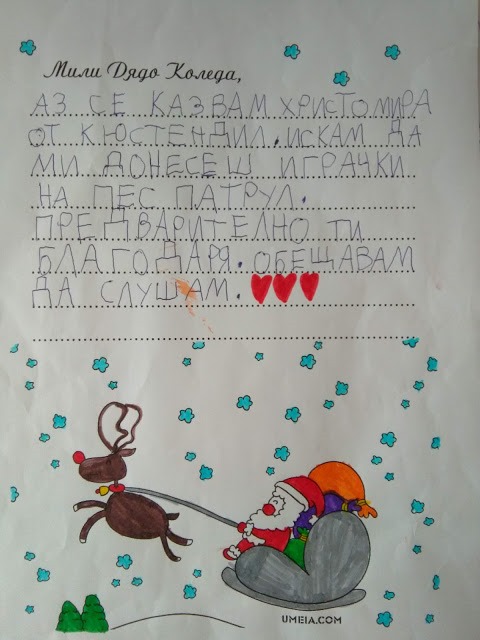 Мили Дядо Коледа,
АЗ СЕ КАЗВАМ ХРИСТОМИРА
ОТ КЮСТЕНДИЛ. ИСКАМ ДА
МИ ДОНЕСЕШ ИГРАЧКИ
НА ПЕС ПАТРУЛ.
ПРЕДВАРИТЕЛНО ТИ
БЛАГОДАРЯ. ОБЕЩАВАМ
ДА СЛУШАМ.
UMEIA.COM